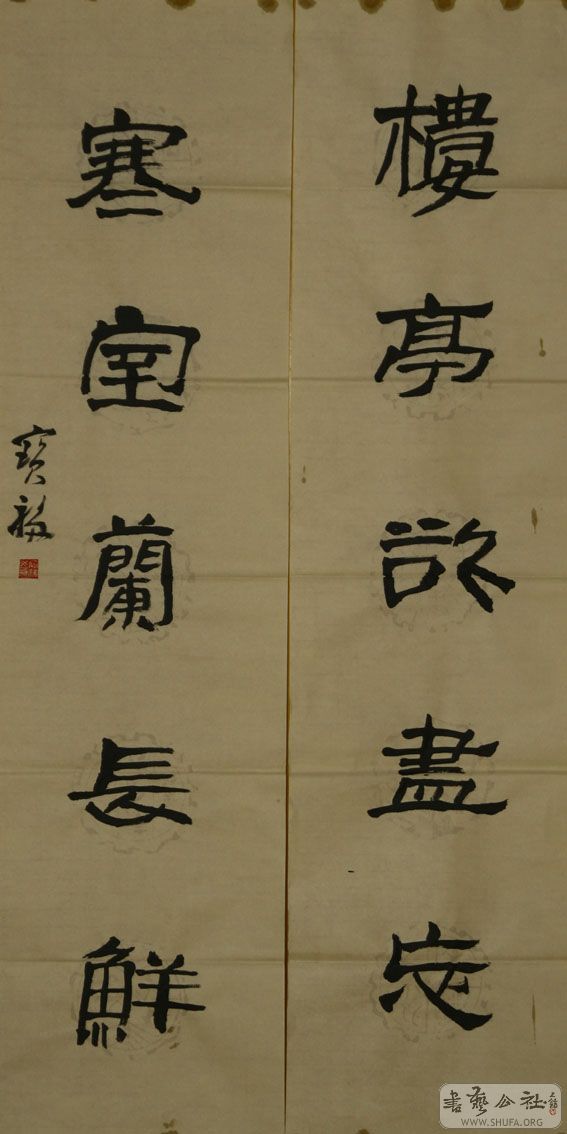 樓亭盡忘
寒室蘭長鮮
寶
書藝公社
WWW.SHUFA.ORG